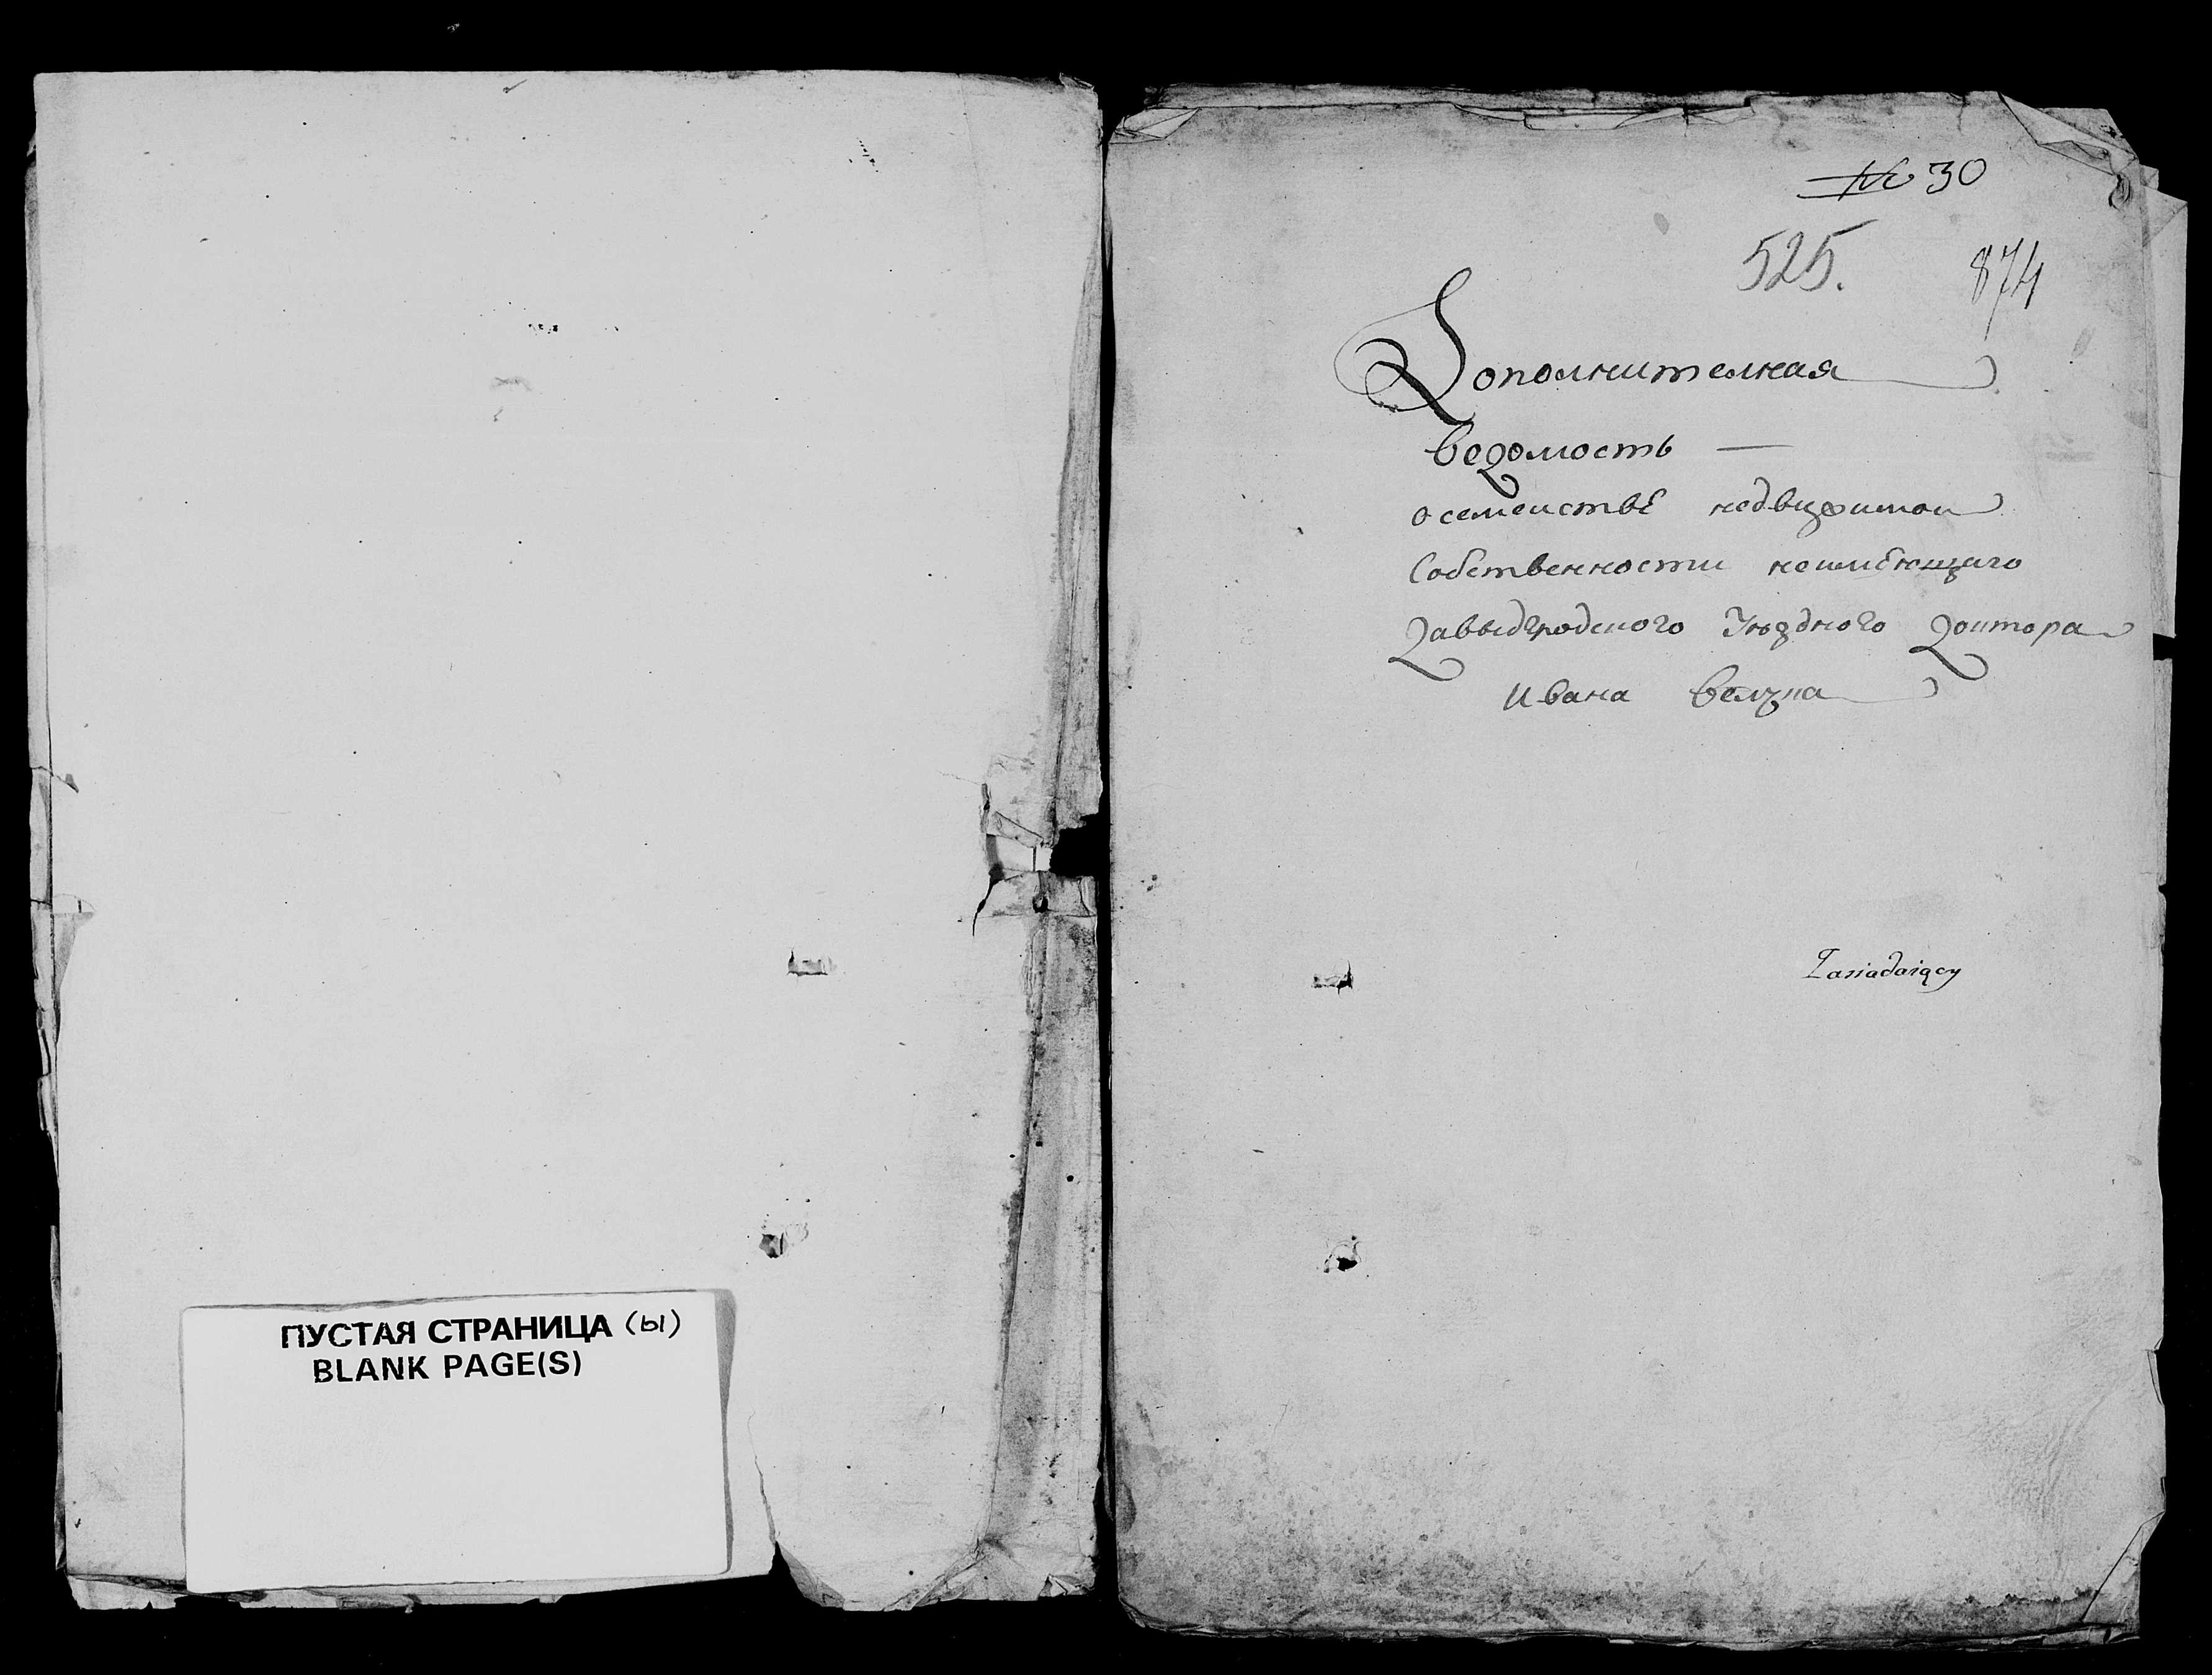 ПУСТАЯ СТРАНИЦА (ы)
BLANK PAGE(S)
№ 30
525. 874
Дополнителная
ведомость —
о семеистве недвижимои
Собственности неимеющаго
Давыдгродского Уезднего Доктора
Ивана